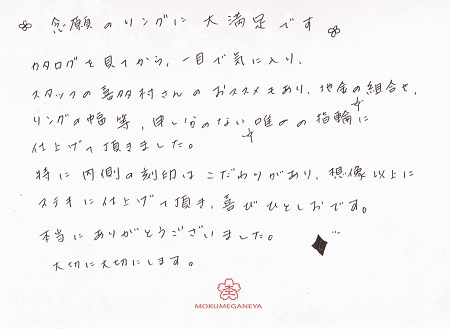 念願のリングに大満足です
カタログを見てから、一目で気に入り、
スタッフの喜多村さんのおススメもあり、地金の組合せ、
リングの幅等、申し分のない唯一の指輪に
仕上げて頂きました。
特に内側の刻印はこだわりがあり、想像以上に
ステキに仕上げて頂き、喜びひとしおです。
本当にありがとうございました。
大切に大切にします。
MOKUMEGANEYA